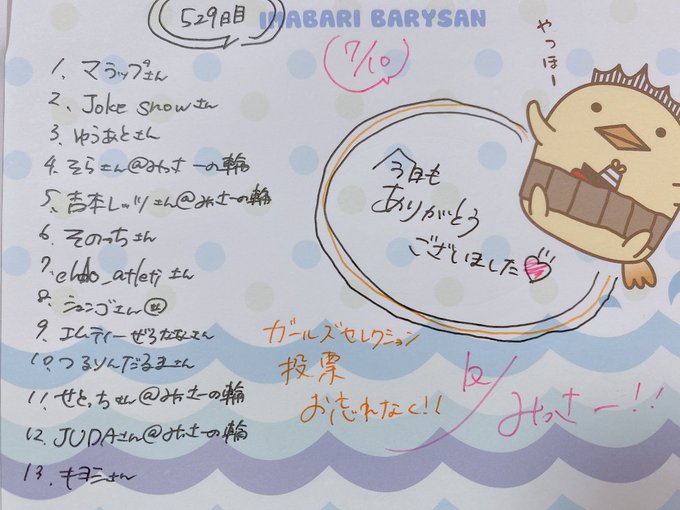 529日目
IMABARI BARYSAN
7/10
やっほー
1. マラップさん
2. Joke snowさん
3. ゆうあとさん
4. そらさん@みっさーの輪
5. 吉本レッツさん@みっさーの輪
6. そのっちさん
7. ehdo_atletiさん
8. シュンゴさん
9. エムティーぜろななさん
10. つるりんだるまさん
11. せとっちさん@みっさーの輪
12. JUDAさん@みっさーの輪
13. キヨミさん
今日も
ありがとう
ございました
ガールズセレクション
投票
お忘れなく!!
みっさー!!